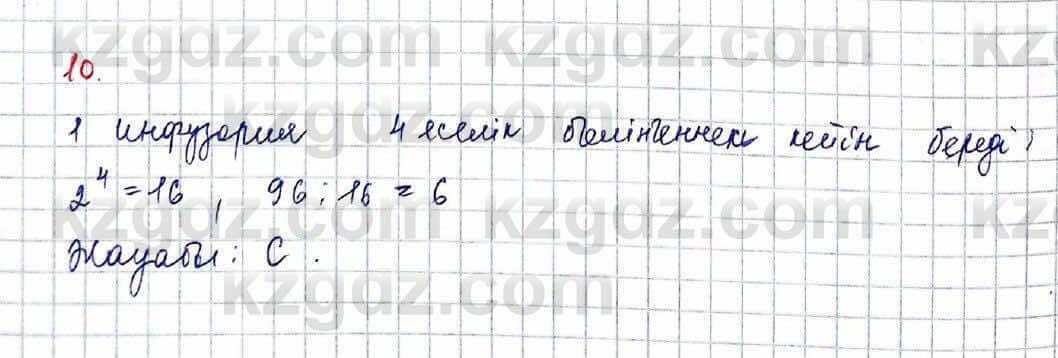 kzgdz.com kzgdz.com kz
10.
1 инфузория 4 еселік бөлінгеннен кейін береді;
2⁴ = 16 , 96 : 16 = 6
kzgdz.com kzgdz.com kz
Жауабы: С .
kzgdz.com